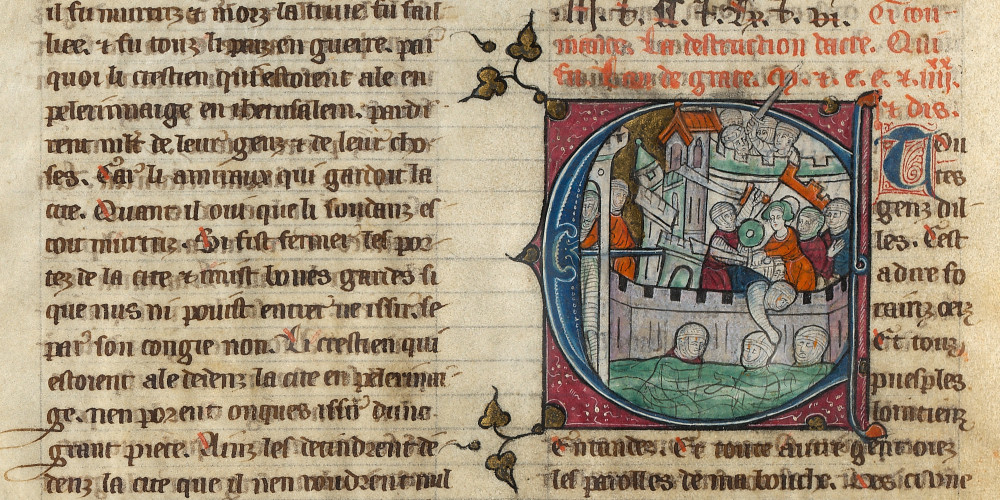 il fu murtriz et morz la truie fu fail
liee. et fu touz li pais en guerre. par
quoi li crestien qui estoient ale en
pelerinnaige en iherusalem. perdi
rent mlt de leur genz et de leur cho
ses. Car li amiraux qui gardoit la
cite. Quant il oui que li soudanz es
toit murtriz. Si fist fermer les por
tez de la cite et mist bones gardes si
que nus ni pouist entrer ne issir. se
par son congie non. Li crestien qui
estoient ale dedenz la cite en pelerina
ge. nen porent onques issir dune
grant piece. Ainz les tendrent de
denz la cite que il nen voudrent nul
Ci con
mance la destruction dacre. Qui
fu lan de grace. M. et c. c. et iiii. xx
et dis.
Tou
tes
genz dil
les. Cest
a dire fo
rainz
Et touz
pueples
lointienz
Entandez. Et toute autre gent oiez
les parolles de ma bouche. Des